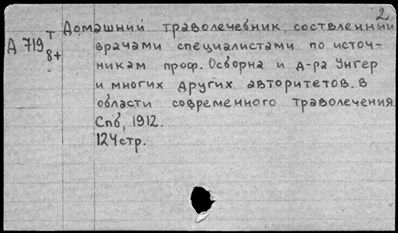 2
Домашний траволечебник, составленный
Д 719 т
8+
врачами специалистами по источ-
никам проф. Осворна и д-ра Унгер
и многих других авторитетов в
области современного траволечения
Спб, 1912.
124стр.